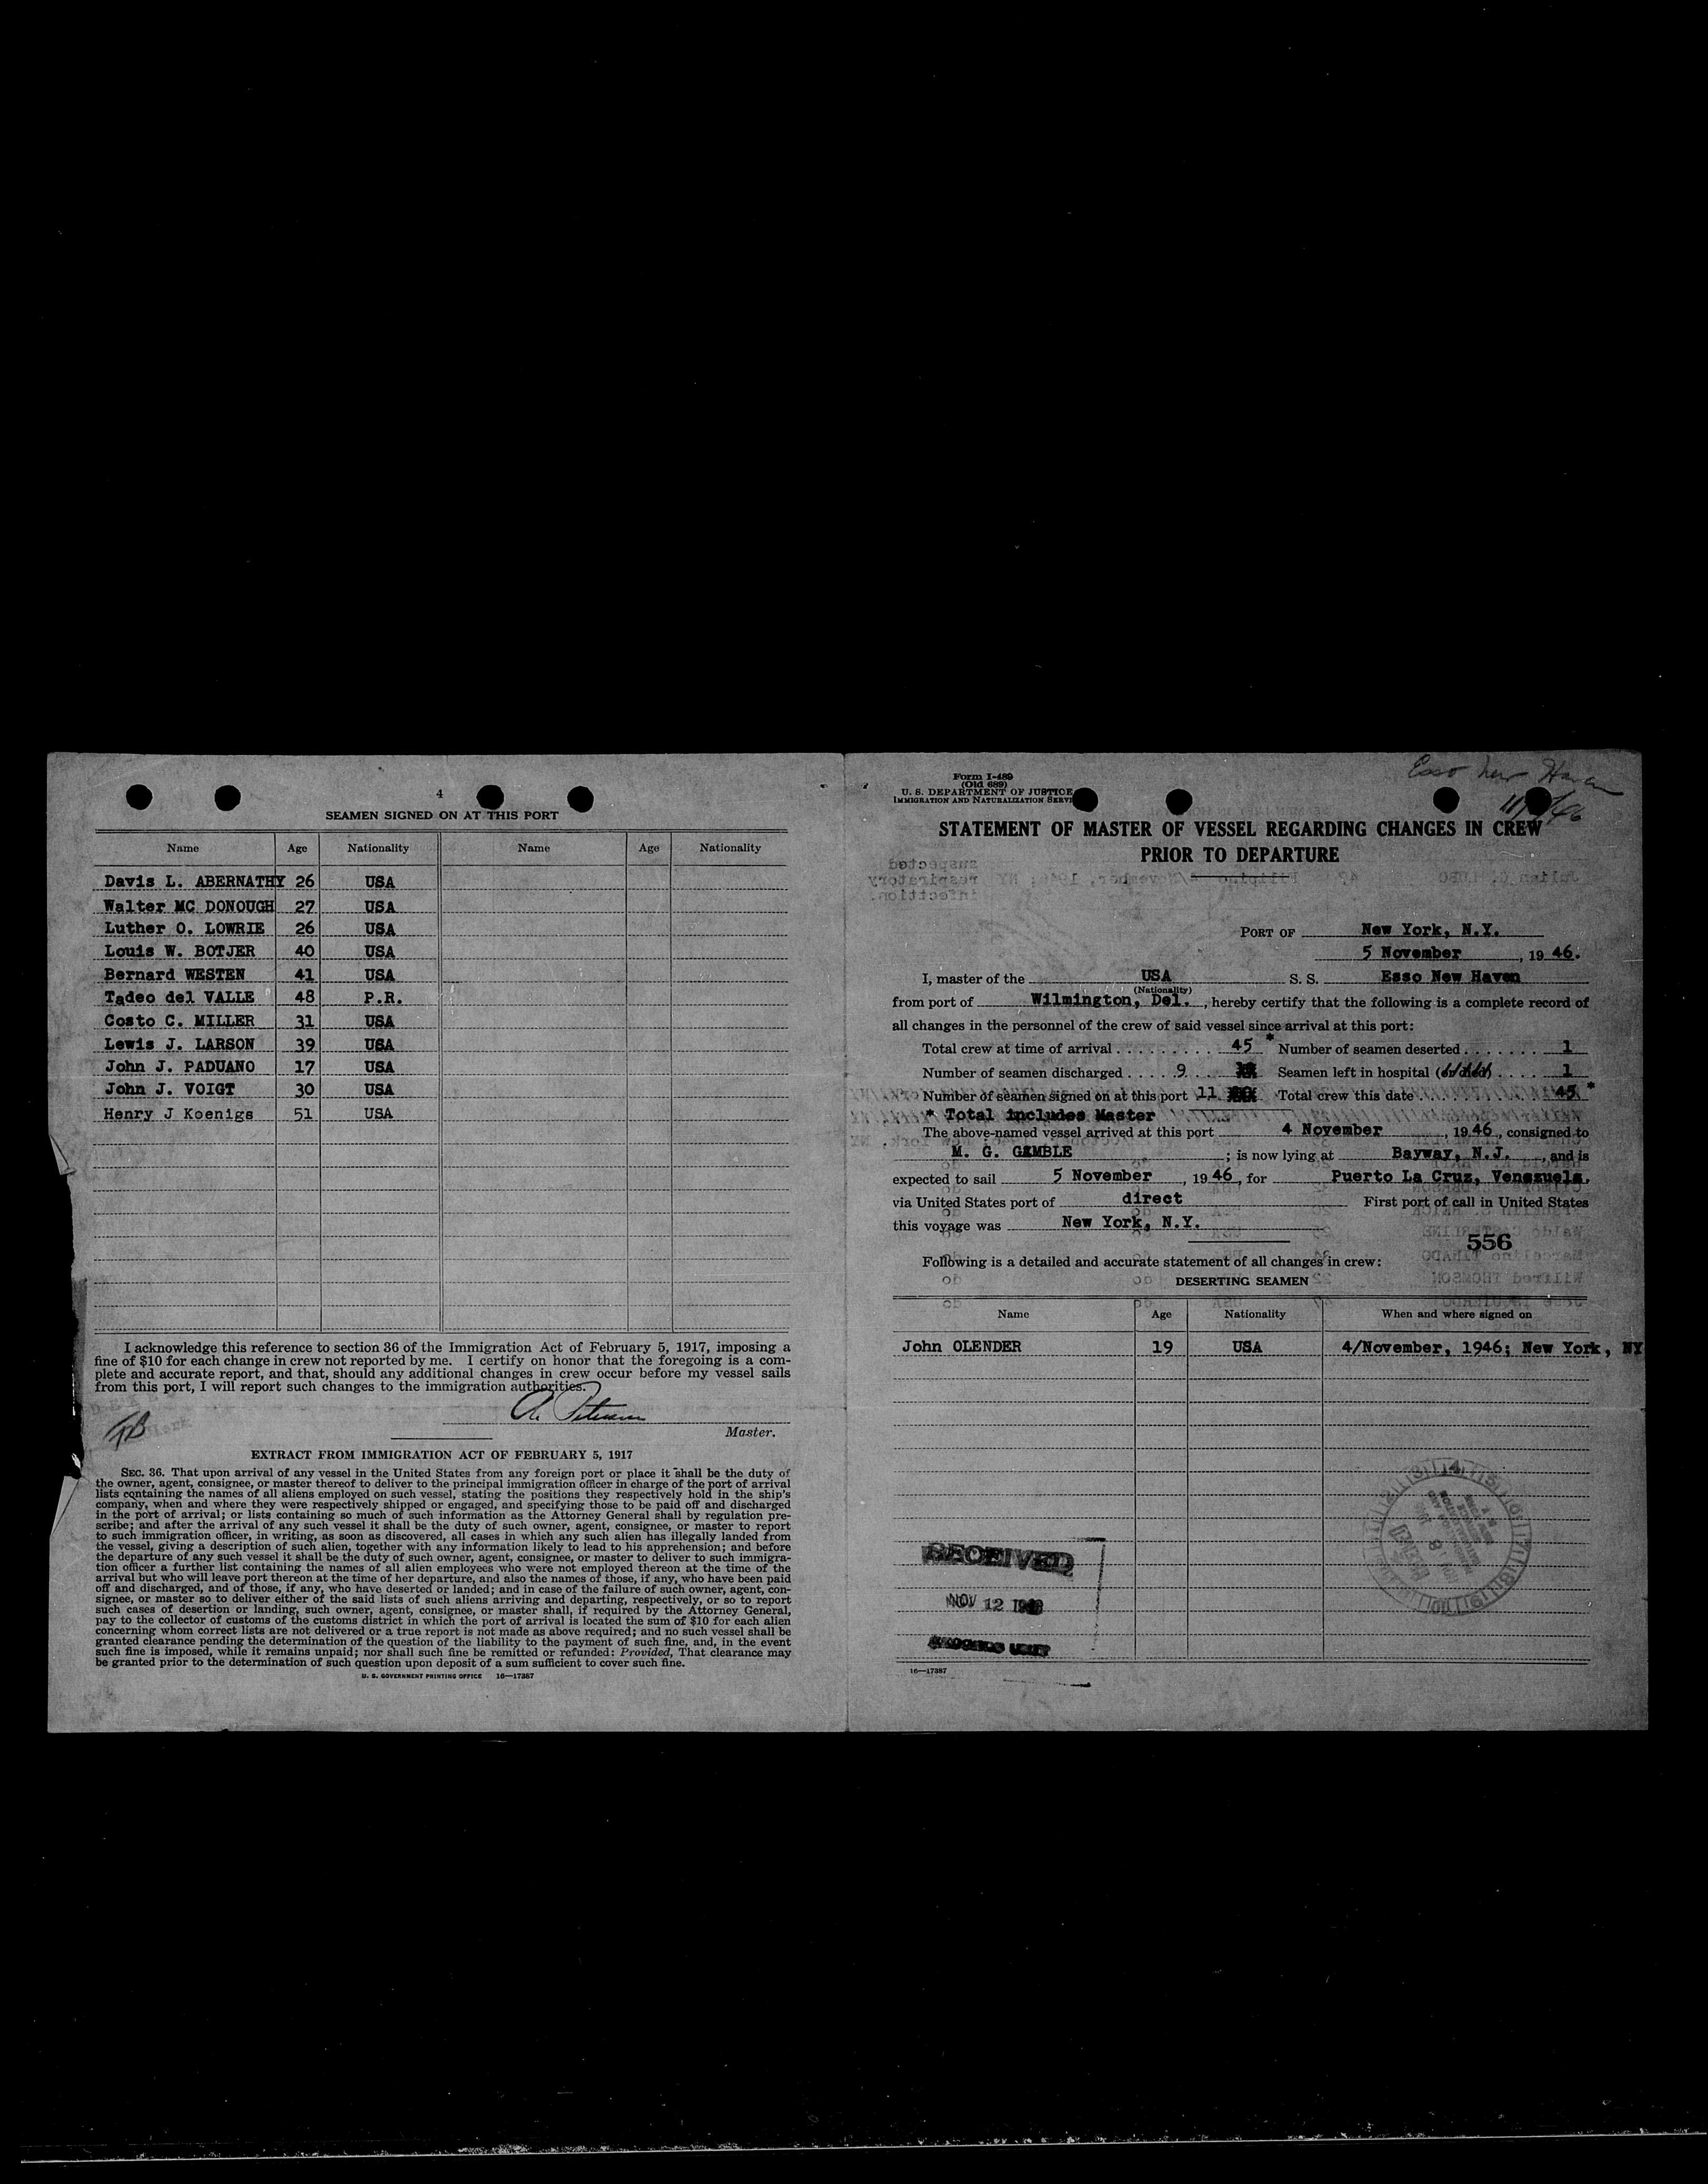 4
SEAMEN SIGNED ON AT THIS PORT
Name Age Nationality Name Age Nationality
Davis L. ABERNATHY 26 USA
Walter MC DONOUGH 27 USA
Luther O. LOWRIE 26 USA
Louis W. BOTJER 40 USA
Bernard WESTEN 41 USA
Tadeo del VALLE 48 P.R.
Costo C. MILLER 31 USA
Lewis J. LARSON 39 USA
John J. PADUANO 17 USA
John J. VOIGT 30 USA
Henry J Koenigs 51 USA
I acknowledge this reference to section 36 of the Immigration Act of February 5, 1917, imposing a
fine of $10 for each change in crew not reported by me. I certify on honor that the foregoing is a com-
plete and accurate report, and that, should any additional changes in crew occur before my vessel sails
from this port, I will report such changes to the immigration authorities.
Master.
EXTRACT FROM IMMIGRATION ACT OF FEBRUARY 5, 1917
SEC. 36. That upon arrival of any vessel in the United States from any foreign port or place it shall be the duty of
the owner, agent, consignee, or master thereof to deliver to the principal immigration officer in charge of the port of arrival
lists containing the names of all aliens employed on such vessel, stating the positions they respectively hold in the ship's
company, when and where they were respectively shipped or engaged, and specifying those to be paid off and discharged
in the port of arrival; or lists containing so much of such information as the Attorney General shall by regulation pre-
scribe; and after the arrival of any such vessel it shall be the duty of such owner, agent, consignee, or master to report
to such immigration officer, in writing, as soon as discovered, all cases in which any such alien has illegally landed from
the vessel, giving a description of such alien, together with any information likely to lead to his apprehension; and before
the departure of any such vessel it shall be the duty of such owner, agent, consignee, or master to deliver to such immigra-
tion officer a further list containing the names of all alien employees who were not employed thereon at the time of the
arrival but who will leave port thereon at the time of her departure, and also the names of those, if any, who have been paid
off and discharged, and of those, if any, who have deserted or landed; and in case of the failure of such owner, agent, con-
signee, or master so to deliver either of the said lists of such aliens arriving and departing, respectively, or so to report
such cases of desertion or landing, such owner, agent, consignee, or master shall, if required by the Attorney General,
pay to the collector of customs of the customs district in which the port of arrival is located the sum of $10 for each alien
concerning whom correct lists are not delivered or a true report is not made as above required; and no such vessel shall be
granted clearance pending the determination of the question of the liability to the payment of such fine, and, in the event
such fine is imposed, while it remains unpaid; nor shall such fine be remitted or refunded: Provided, That clearance may
be granted prior to the determination of such question upon deposit of a sum sufficient to cover such fine.
U. S. GOVERNMENT PRINTING OFFICE 16—17387
Esso New Haven
Form I-489
(Old 689)
U. S. DEPARTMENT OF JUSTICE
IMMIGRATION AND NATURALIZATION SERVI
STATEMENT OF MASTER OF VESSEL REGARDING CHANGES IN CREW
PRIOR TO DEPARTURE
PORT OF New York, N.Y.
5 November, 19 46.
I, master of the USA S. S. Esso New Haven
(Nationality)
from port of Wilmington, Del. , hereby certify that the following is a complete record of
all changes in the personnel of the crew of said vessel since arrival at this port:
Total crew at time of arrival 45 * Number of seamen deserted 1
Number of seamen discharged 9 Seamen left in hospital (or died) 1
Number of seamen signed on at this port 11 Total crew this date 45 *
* Total includes Master
The above-named vessel arrived at this port 4 November, 19 46, consigned to
M. G. GAMBLE ; is now lying at Bayway, N.J. , and is
expected to sail 5 November, 19 46, for Puerto La Cruz, Venezuela.
via United States port of direct First port of call in United States
this voyage was New York, N.Y.
556
Following is a detailed and accurate statement of all changes in crew:
DESERTING SEAMEN
Name Age Nationality When and where signed on
John OLENDER 19 USA 4/November, 1946; New York, NY
RECEIVED
NOV 12 1946
16—17387